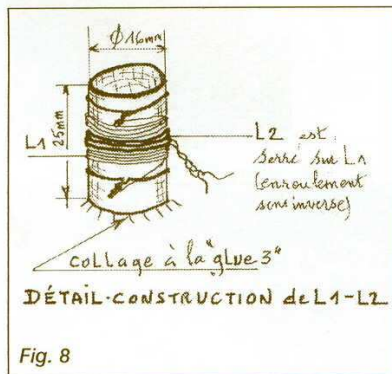 ϕ16mm
25mm
L1
L2 est
serré sur L1
(enroulement
sens inverse)
collage à la "glue 3"
DÉTAIL·CONSTRUCTION de L1-L2
Fig. 8